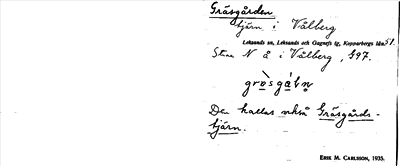 Gräsgården
tjärn i Vålberg
Leksands sn, Leksands och Gagnefs tg, Kopparbergs län. 51.
N å i Vålberg, 397.
Den kallas också Gräsgårds-
tjärn.
ERIK M. CARLSSON, 1935.